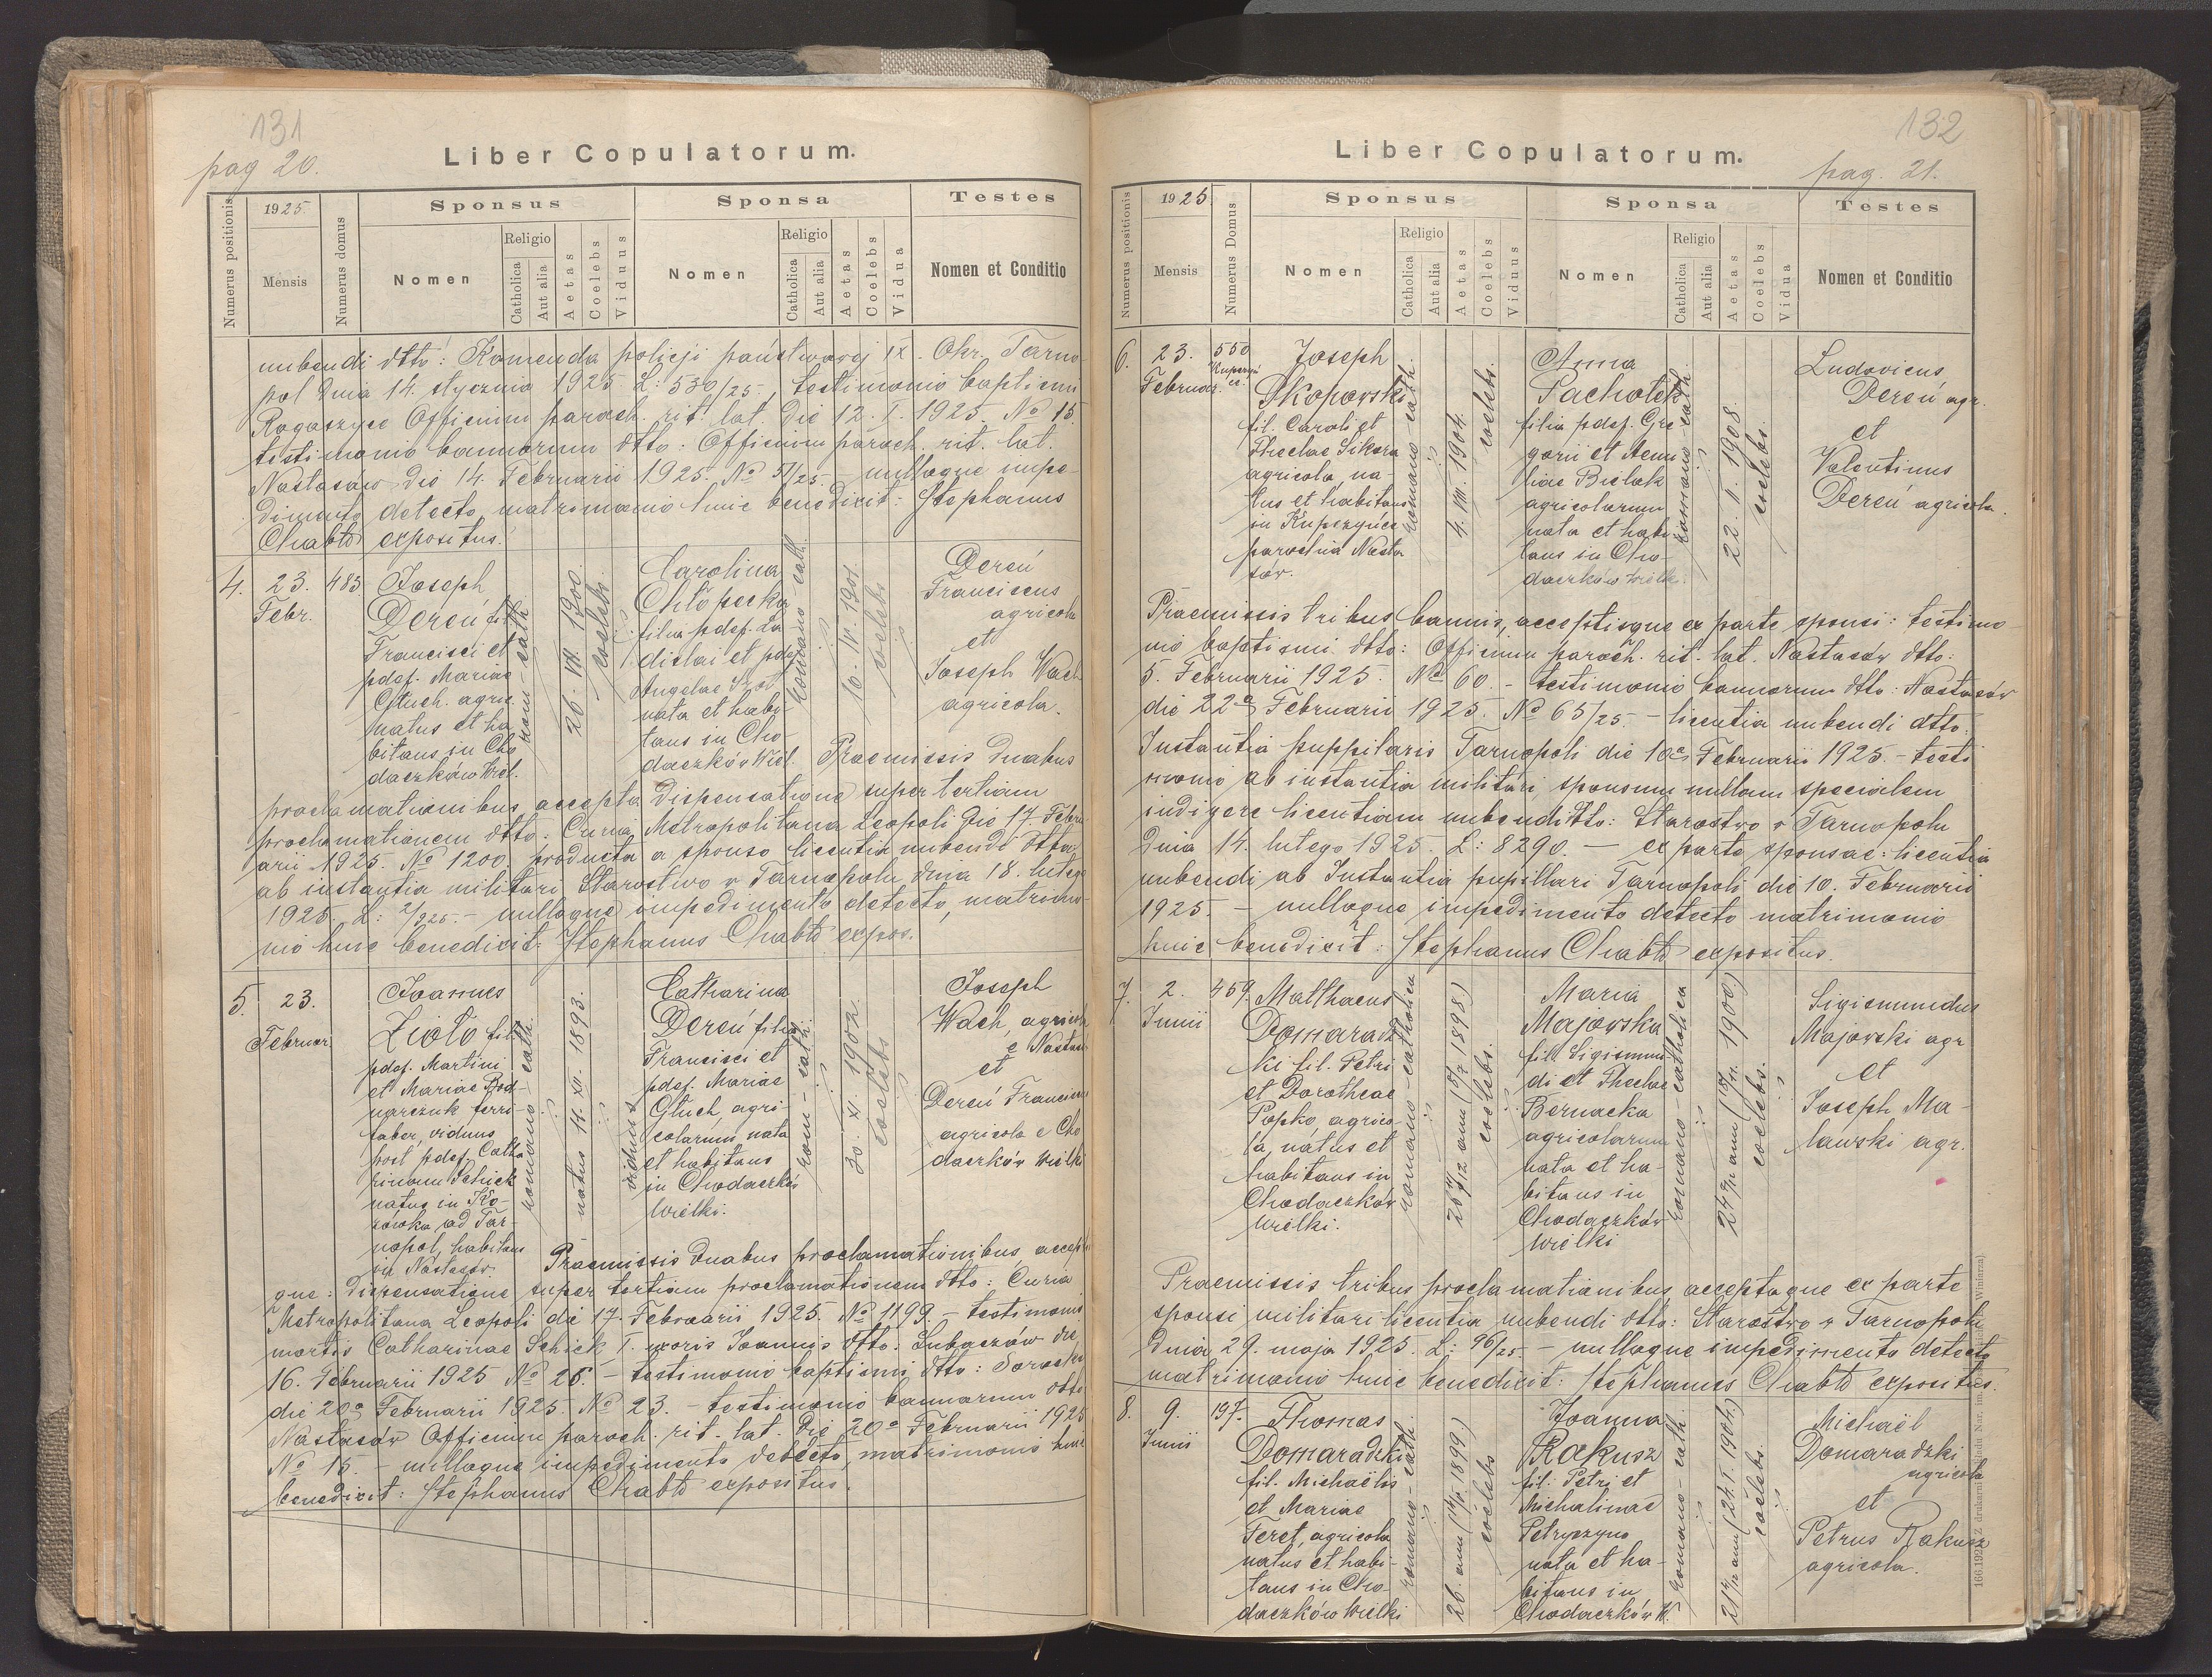 131
pag 20.
Liber Copulatorum.
Numerus positionis
1925.
Mensis
Numerus domus
Sponsus
Nomen
Religio
Catholica
Aut alia
Aetas
Coelebs
Viduus
Sponsa
Nomen
Religio
Catholica
Aut alia
Aetas
Coelebs
Vidua
Testes
Nomen et Conditio
nubendi dtto: Komenda policji państwowej IX. Okr. Tarno-
pol dnia 14. stycznia 1925 L: 530/25, testimonio baptismi
Officium paroch. rit. lat. die 12. I. 1925. No 15.
testimonio bannorum dtto: Officium paroch. rit. lat.
Nastasów die 14. Februarii 1925. No 51/25 - nulloque impe-
dimento detecto, matrimonio huic benedixit: Stephanus
Chabło expositus.
4.
23.
Febr.
483
Joseph
Dereń fil.
Francisci et
pdef. Mariae
Głuch. agric.
natus et ha
bitans in Cho
daczków Wiel.
rom-cath
26. VII. 1900.
coelebs
Carolina
Chłopecka
filia pdef. La
dislai et pdef
Angelae
nata et habi
tans in Cho-
daczków Wiel.
romano-cath.
10. IV. 1901
coelebs
Dereń
Franciscus
agricola
et
Joseph Wach
agricola.
Praemissis duabus
proclamationibus, accepta dispensatione super tertiam
proclamationem dtto: Curia Metropolitana Leopoli die 17. Febru
arii 1925. No 1200. producta a sponso licentia nubendi dtto
ab instantia militari Starostwo w Tarnopolu dnia 18. lutego
1925. L: 2/925. - nulloque impedimento detecto, matrimo-
nio huic benedixit: Stephanus Chabło expos.
5.
23.
Februar
Joannes
Zioło fil.
pdef. Martini
et Mariae Bod-
narczuk ferri-
faber, viduus
post pdef. Catha
rinam Schick
natus in Ko-
zówka ad Tar-
nopol, habitans
in Nastasów.
romano-cath.
natus 14. XII. 1893.
viduus
Catharina
Dereń filia
Francisci et
pdef. Mariae
Głuch, agri-
colarum, nata
et habitans
in Chodaczków
Wielki.
rom-cath.
30. XI. 1902.
coelebs
Joseph
Wach, agricola
e Nastas
et
Dereń Franciscus
agricola e Cho
daczków Wielki
Praemissis duabus proclamationibus, accepta
que: dispensatione super tertiam proclamationem dtto: Curia
Metropolitana Leopoli die 17. Februarii 1925. No 1199. - testimonio
mortis Catharinae Schick I. uxoris Joannis dtto: Lubaczów die
16. Februarii 1925 No 26. - testimonio baptismi dtto:
die 20a Februarii 1925. No 23. - testimonio bannorum dtto
Nastasów Officium paroch. rit. lat. die 20a Februarii 1925
No 15. - nulloque impedimento detecto, matrimonio huic
benedixit: Stephanus Chabło expositus.
132
pag. 21.
Liber Copulatorum.
Numerus positionis
1925.
Mensis
Numerus Domus
Sponsus
Nomen
Religio
Catholica
Aut alia
Aetas
Coelebs
Viduus
Sponsa
Nomen
Religio
Catholica
Aut alia
Aetas
Coelebs
Vidua
Testes
Nomen et Conditio
6.
23.
Februar.
550
Joseph
Skoporski
fil. Caroli et
Theclae Sikora
agricola, na-
tus et habitans
in Kupczyńce
parochia Nasta
sów.
romano-cath.
4. VIII. 1904.
coelebs.
Anna
Pachołek
filia pdef. Gre
gorii et
Bielak
agricolarum
nata et habi
tans in Cho-
daczków Wielki.
romano-cath.
22. I. 1908.
coelebs.
Ludovicus
Dereń agr.
et
Valentinus
Dereń agricola.
Praemissis tribus bannis, acceptisque ex parte sponsi: testimo-
nio baptismi dtto: Officium paroch. rit. lat. Nastasów dtto:
5. Februarii 1925. No 60. - testimonio bannorum dtto: Nastasów
die 22a Februarii 1925. No 65/25. - licentia nubendi dtto.
Instantia puppilaris Tarnopoli die 10a Februarii 1925. - testi
monio ab instantia militari, sponsum nullam specialem
indigere licentiam nubendi dtto: Starostwo w Tarnopolu
dnia 14. lutego 1925. L: 8290. - ex parte sponsae: licentia
nubendi ab Instantia pupillari Tarnopoli die 10. Februarii
1925. - nulloque impedimento detecto matrimonio
huic benedixit: Stephanus Chabło expositus.
7.
2.
Junii
459.
Matthaeus
Domaradz
ki fil. Petri
et Dorotheae
Popko, agrico-
la, natus et
habitans in
Chodaczków
Wielki.
romano-catholica
coelebs.
Maria
Majowska
fil. Sigismun
di et Theclae
Bernacka
agricolarum
nata et ha-
bitans in
Chodaczków
Wielki
romano-catholica
coelebs.
Sigismundus
Majowski agr
et
Joseph Ma-
lawski agr.
Praemissis tribus proclamationibus, acceptaque ex parte
sponsi militari licentia nubendi dtto: Starostwo w Tarnopolu
dnia 29. maja 1925. L: 96/25 - nulloque impedimento detecto
matrimonio huic benedixit: Stephanus Chabło expositus.
8.
9.
Junii
197.
Thomas
Domaradzki
fil. Michaëlis
et Mariae
Feret, agricola
natus et habi-
tans in Cho-
daczków Wielki
romano-cath.
coelebs
Joanna
Rakusz
fil. Petri et
Michalinae
Petryczyna
nata et ha-
bitans in
Chodaczków W.
romano-cath.
coelebs.
Michaël
Domaradzki
agricola
et
Petrus Rakusz
agricola.